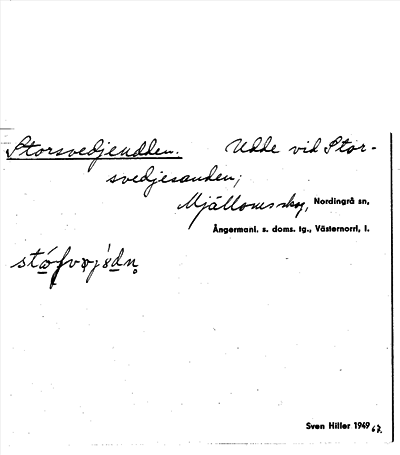 Storsvedjeudden. Udde vid Stor-
svedjesanden;
Mjällomsskog, Nordingrå sn,
Ångermanl. s. doms. tg., Västernorrl. l.
Sven Hiller 1969